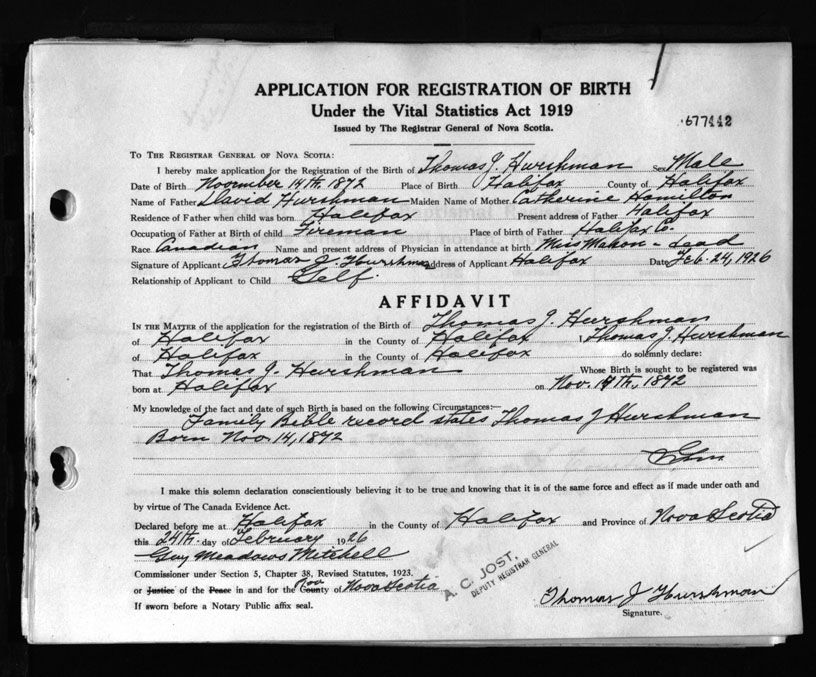 APPLICATION FOR REGISTRATION OF BIRTH
Under the Vital Statistics Act 1919
Issued by The Registrar General of Nova Scotia.
677442
TO THE REGISTRAR GENERAL OF NOVA SCOTIA:
I hereby make application for the Registration of the Birth of Thomas J. Hurshman Male
Date of Birth November 14th, 1872 Place of Birth Halifax County of Halifax
Name of Father David Hurshman Maiden Name of Mother Catherine Hamilton
Residence of Father when child was born Halifax Present address of Father Halifax
Occupation of Father at Birth of child Fireman Place of birth of Father Halifax Co.
Race Canadian Name and present address of Physician in attendance at birth Miss Mahon - dead
Signature of Applicant Thomas J. Hurshman address of Applicant Halifax Date Feb. 24, 1926
Relationship of Applicant to Child Self.
AFFIDAVIT
IN THE MATTER of the application for the registration of the Birth of Thomas J. Hurshman
of Halifax in the County of Halifax I, Thomas J. Hurshman
of Halifax in the County of Halifax do solemnly declare:
That Thomas J. Hurshman Whose Birth is sought to be registered was
born at Halifax on Nov. 14th, 1872
My knowledge of the fact and date of such Birth is based on the following Circumstances:—
Family Bible record states Thomas J Hurshman
Born Nov 14, 1872
I make this solemn declaration conscientiously believing it to be true and knowing that it is of the same force and effect as if made under oath and
by virtue of The Canada Evidence Act.
Declared before me at Halifax in the County of Halifax and Province of Nova Scotia
this 24th. day of February 1926
Guy Meadows Mitchell
Commissioner under Section 5, Chapter 38, Revised Statutes, 1923.
or Justice of the Peace in and for the County of Nova Scotia
If sworn before a Notary Public affix seal.
A. C. JOST.
DEPUTY REGISTRAR GENERAL
Thomas J Hurshman
Signature.